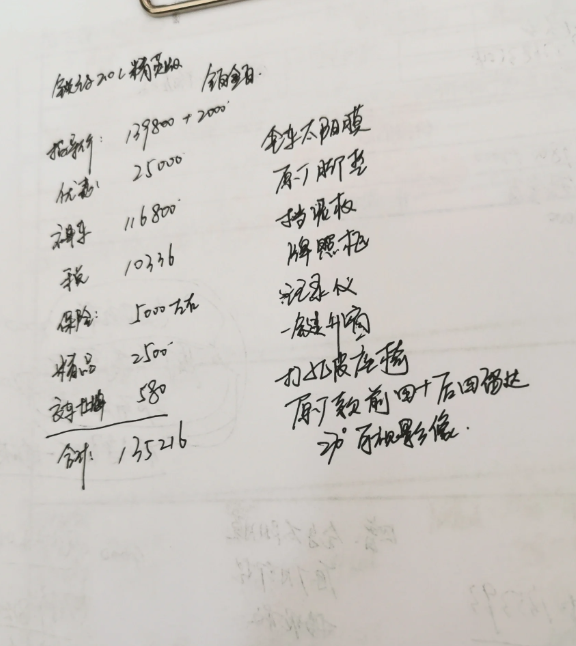 锐际2.0L精英版 铂金白
指导价: 139800+2000
优惠: 25000
裸车 116800
税 10336
保险: 5000左右
精品 2500
交车上牌 580
合计: 135216
全车太阳膜
原厂脚垫
挡泥板
牌照框
记录仪
一键升窗
打孔皮座椅
原厂款前四+后四雷达
后视影像.